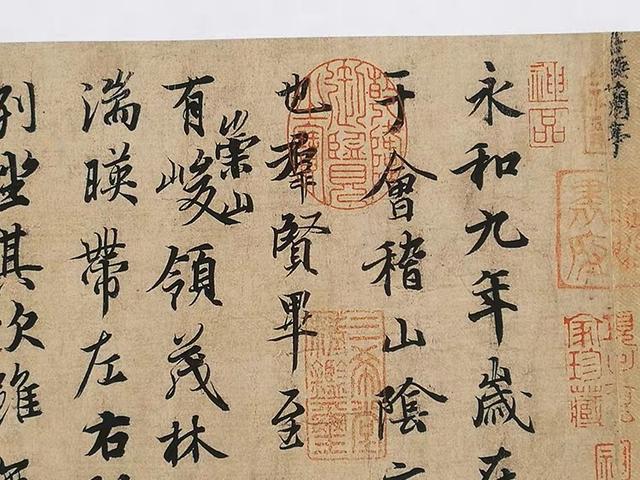 神品
永和九年歲在
于會稽山陰
也羣賢畢至
有崇山峻領茂林
湍暎帶左右
列坐其次雖無
三希堂精鑑璽